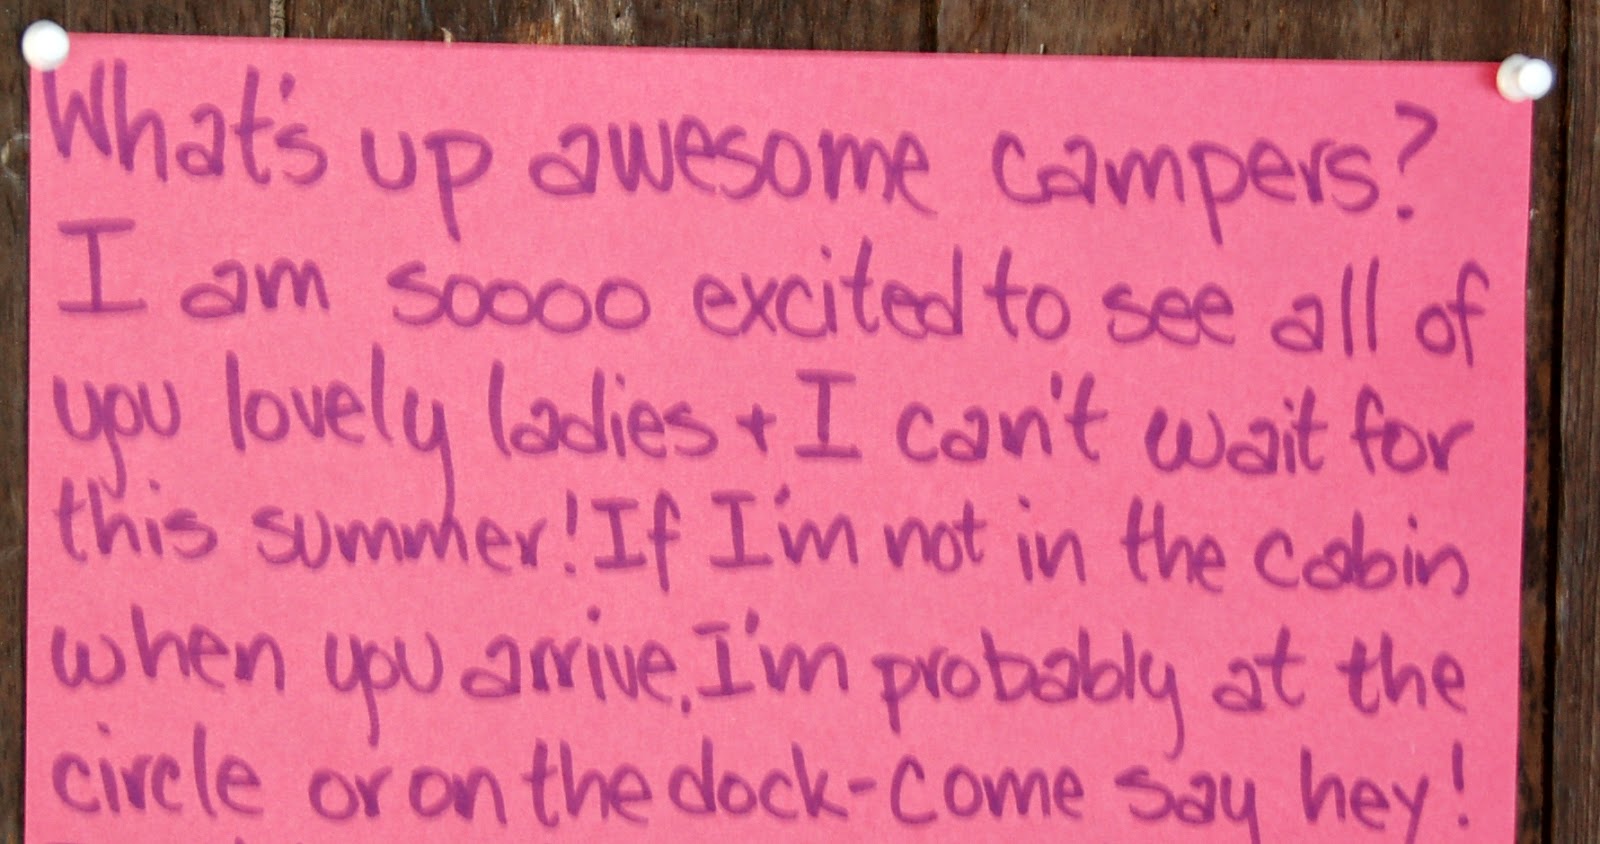 What's up awesome campers?
I am soooo excited to see all of
you lovely ladies + I can't wait for
this summer! If I'm not in the cabin
when you arrive, I'm probably at the
circle or on the dock - come say hey!